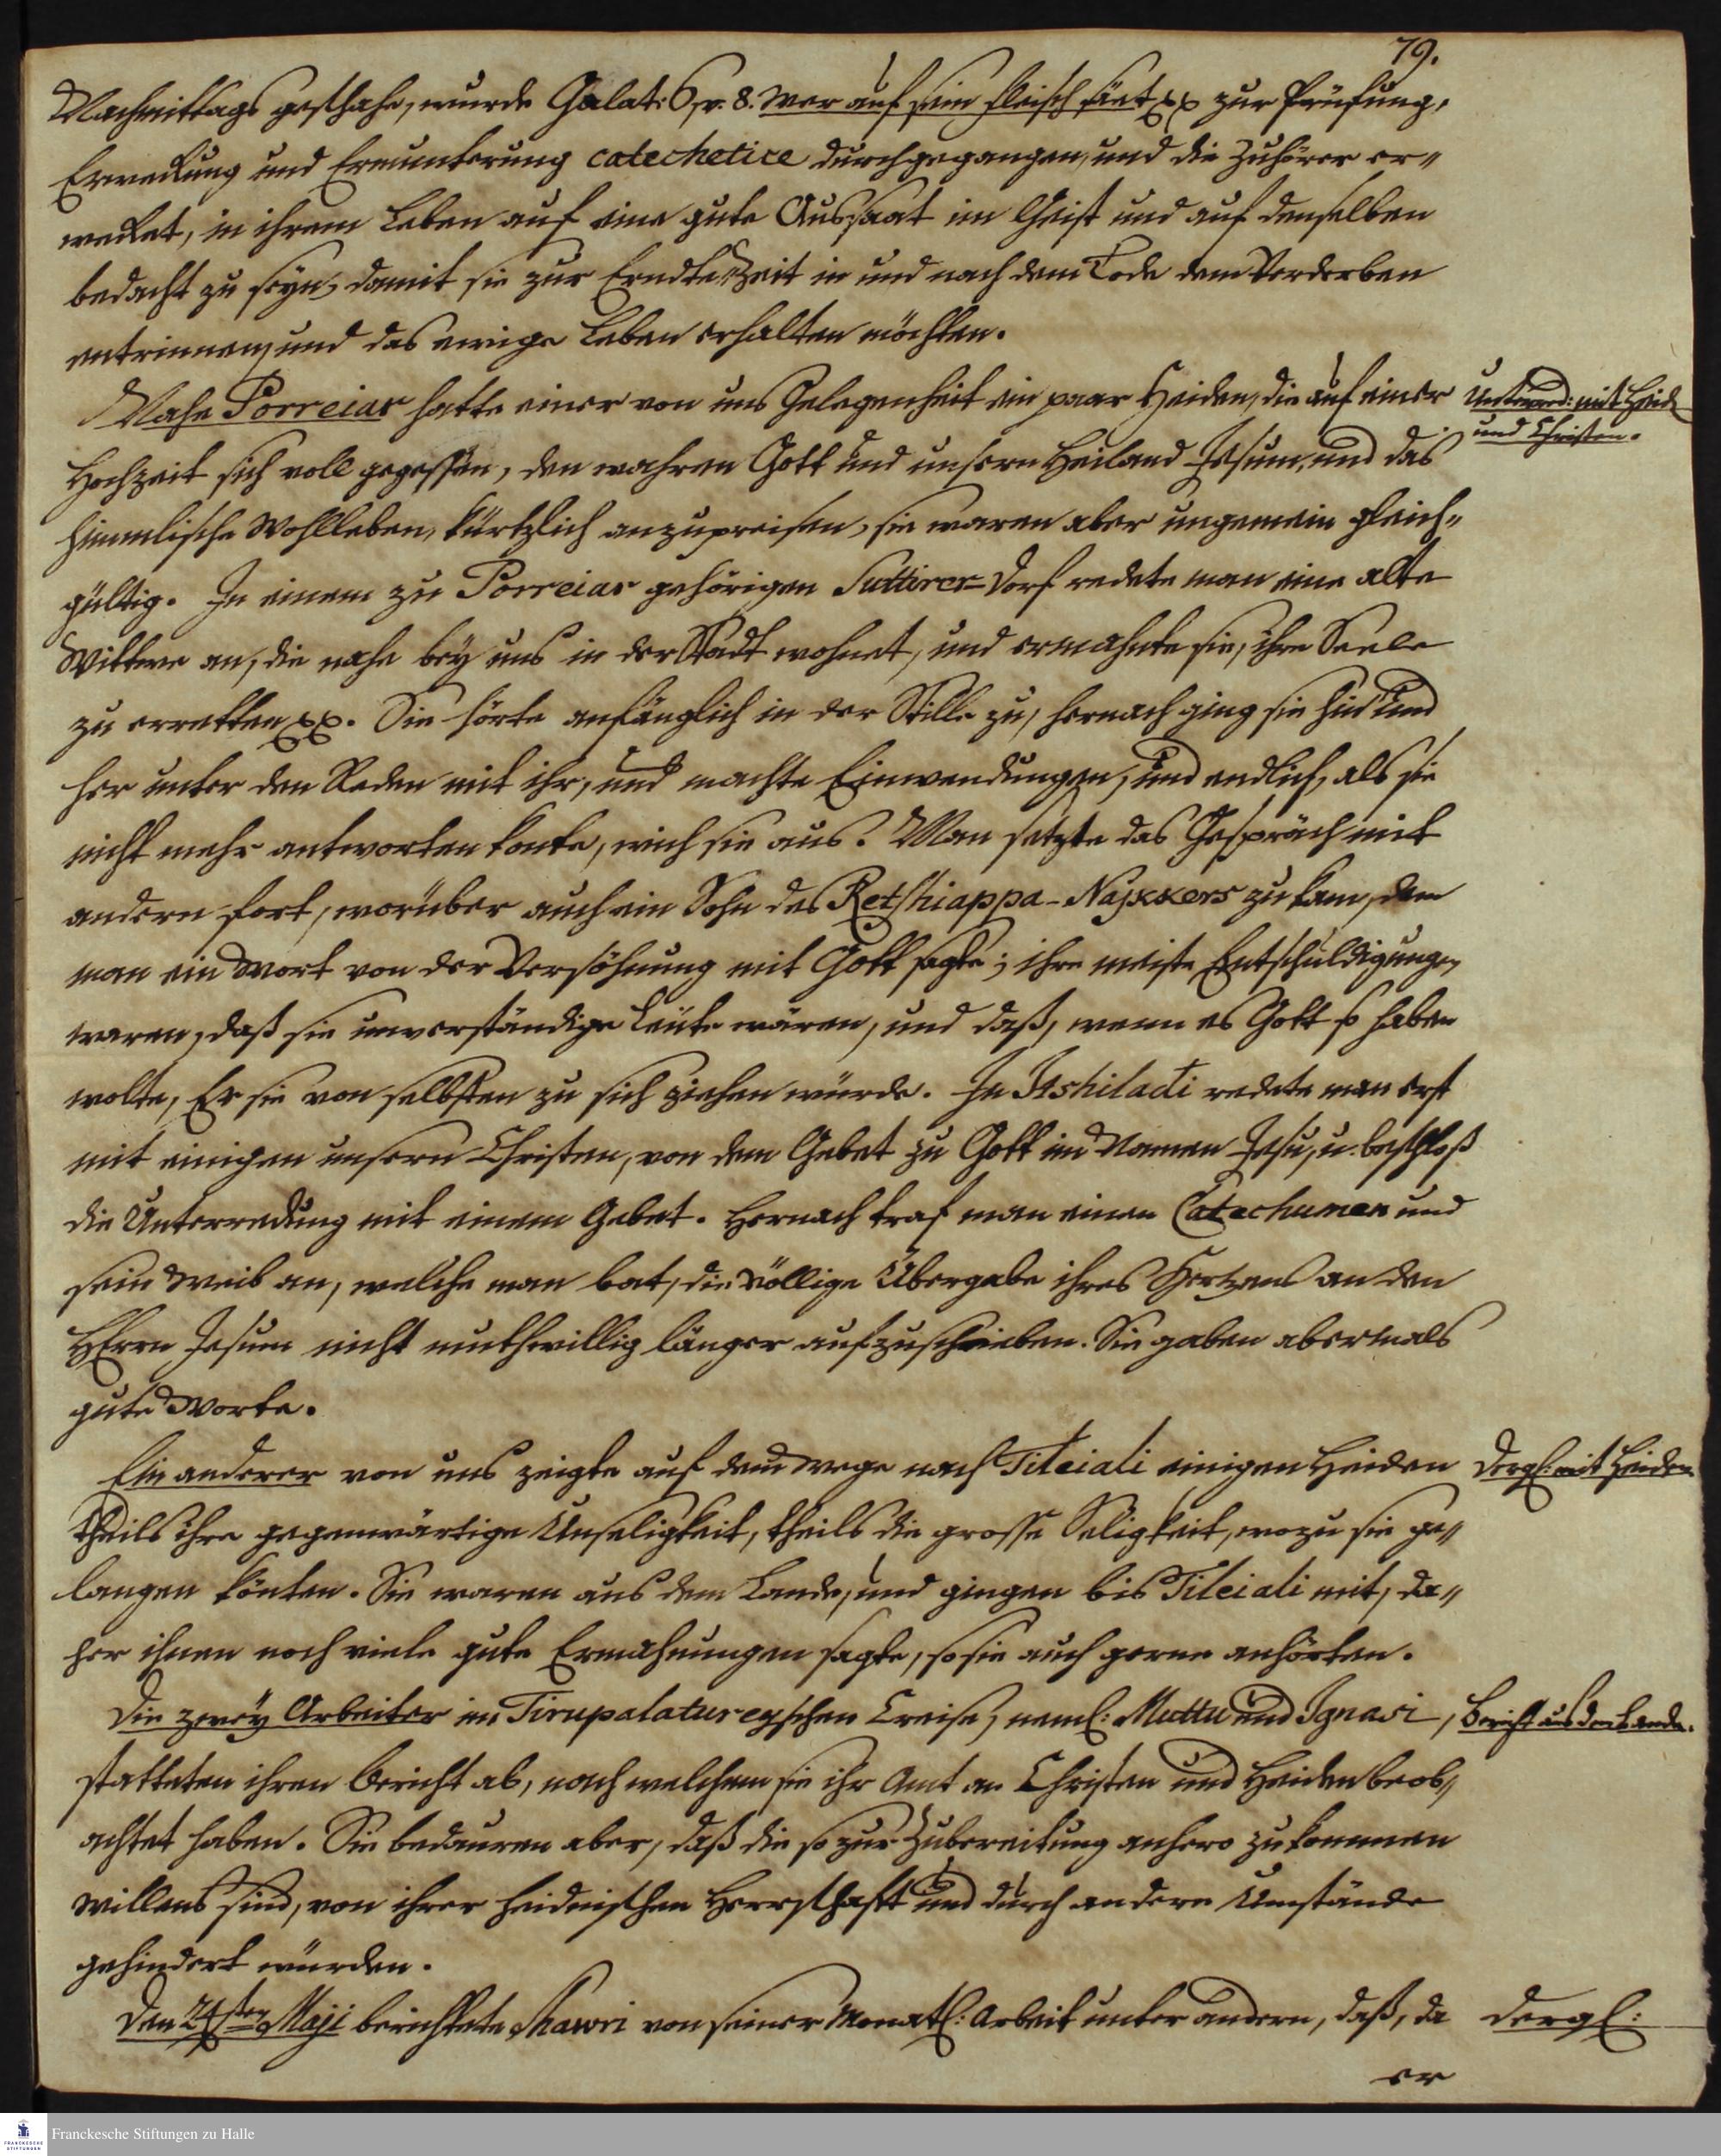 79.
Nachmittags geschahe, wurde Galat: 6, v. 8. Wer auf sein Fleisch säet xx zur Prüfung,
Erweckung und Ermunterung catechetice durchgegangen, und die Zuhörer er-
wecket, in ihrem Leben auf eine gute Aussaat im Geist und auf denselben
bedacht zu seyn, damit sie zur Erndte-Zeit in und nach dem Tode dem Verderben
entrinnen, und das ewige Leben erhalten möchten.
Nahe Porreiar hatte einer von uns Gelegenheit ein paar Heiden, die auf einer
Unterred: mit Heid
und Christen.
Hochzeit sich voll gegessen, den wahren Gott und unsern Heiland Jesum, und das
himmlische Wohlleben, kürtzlich anzupreisen, sie waren aber ungemein gleich-
gültig. In einem zu Porreiar gehörigen Suttirer-Dorf redete man eine alte
Wittwe an, die nahe bey uns in der Stadt wohnet, und ermahnte sie, ihre Seele
zu erretten xx. Sie hörte anfänglich in der Stille zu, hernach ging sie hin und
her unter den Reden mit ihr, und machte Einwendungen, und endlich, als sie
nicht mehr antworten konte, wich sie aus. Man setzte das Gespräch mit
andern fort, worüber auch ein Sohn des Retshiappa-Naikkers zu kam, dem
man ein Wort von der Versöhnung mit Gott sagte; ihre meiste Entschuldigungen
waren, daß sie unverständige Leute wären, und daß, wenn es Gott so haben
wolte, Er sie von selbsten zu sich ziehen würde. In Itshiladi redete man erst
mit einigen unsern Christen, von dem Gebet zu Gott im Namen Jesu, u. beschloß
die Unterredung mit einem Gebet. Hernach traf man einen Catechumen und
sein Weib an, welche man bat, die völlige Übergabe ihres Hertzens an den
HErrn Jesum nicht muthwillig länger aufzuschieben. Sie gaben abermals
gute Worte.
Ein anderer von uns zeigte auf dem Wege nach Tileiali einigen Heiden
Dergl: mit Heiden
theils ihre gegenwärtige Unseligkeit, theils die grosse Seligkeit, wozu sie ge-
langen könten. Sie waren aus dem Lande, und gingen bis Tileiali mit, da-
her ihnen noch viele gute Ermahnungen sagte, so sie auch gerne anhörten.
Die zwey Arbeiter im Tirupalatureyschen Creise, neml: Muttu und Ignasi,
Bericht aus dem Lande.
statteten ihren Bericht ab, nach welchem sie ihr Amt an Christen und Heiden beob-
achtet haben. Sie bedauren aber, daß die so zur Zubereitung anhero zu kommen
willens sind, von ihrer heidnischen Herrschafft und durch andere Umstände
gehindert würden.
Den 24sten Maji berichtete Shawri von seiner Monatl: Arbeit unter andern, daß, da
Dergl:
er
Franckesche Stiftungen zu Halle
FRANCKESCHE
STIFTUNGEN